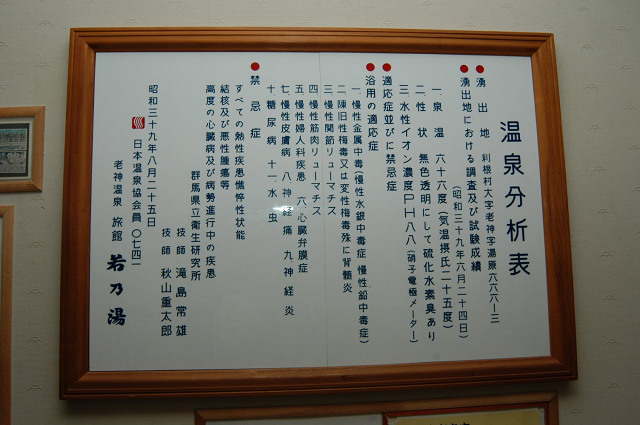 温泉分析表
湧出地 利根村大字老神字湯原六六六ー三
湧出地における調査及び試験成績
(昭和三十九年六月二十四日)
一、泉温 六十六度(気温摂氏二十五度)
二、性状 無色透明にして硫化水素臭あり
三、水性イオン濃度PH八八(硝子電極メーター)
適応症並びに禁忌症
浴用の適応症
一、慢性金属中毒(慢性水銀中毒症 慢性鉛中毒症)
二、陳旧性梅毒又は変性梅毒殊に脊髄炎
三、慢性関節リューマチス
四、慢性筋肉リューマチス
五、慢性婦人科疾患 六、心臓弁膜症
七、慢性皮膚病 八、神経痛 九、神経炎
十、糖尿病 十一、水虫
禁忌症
すべての熱性疾患憔悴性状態
結核及び悪性腫瘍等
高度の心臓病及び病勢進行中の疾患
群馬県立衛生研究所
技師 滝島常雄
技師 秋山重太郎
昭和三十九年八月二十五日
日本温泉協会員 〇七四一
老神温泉 旅館 若乃湯